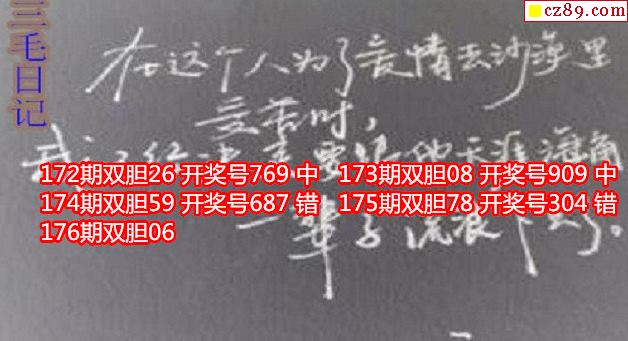 cz89.com
三毛日记
在这个人为了爱情去沙漠里
受苦时，
172期双胆26 开奖号769 中 173期双胆08 开奖号909 中
174期双胆59 开奖号687 错 175期双胆78 开奖号304 错
176期双胆06
一辈子流浪下去了。